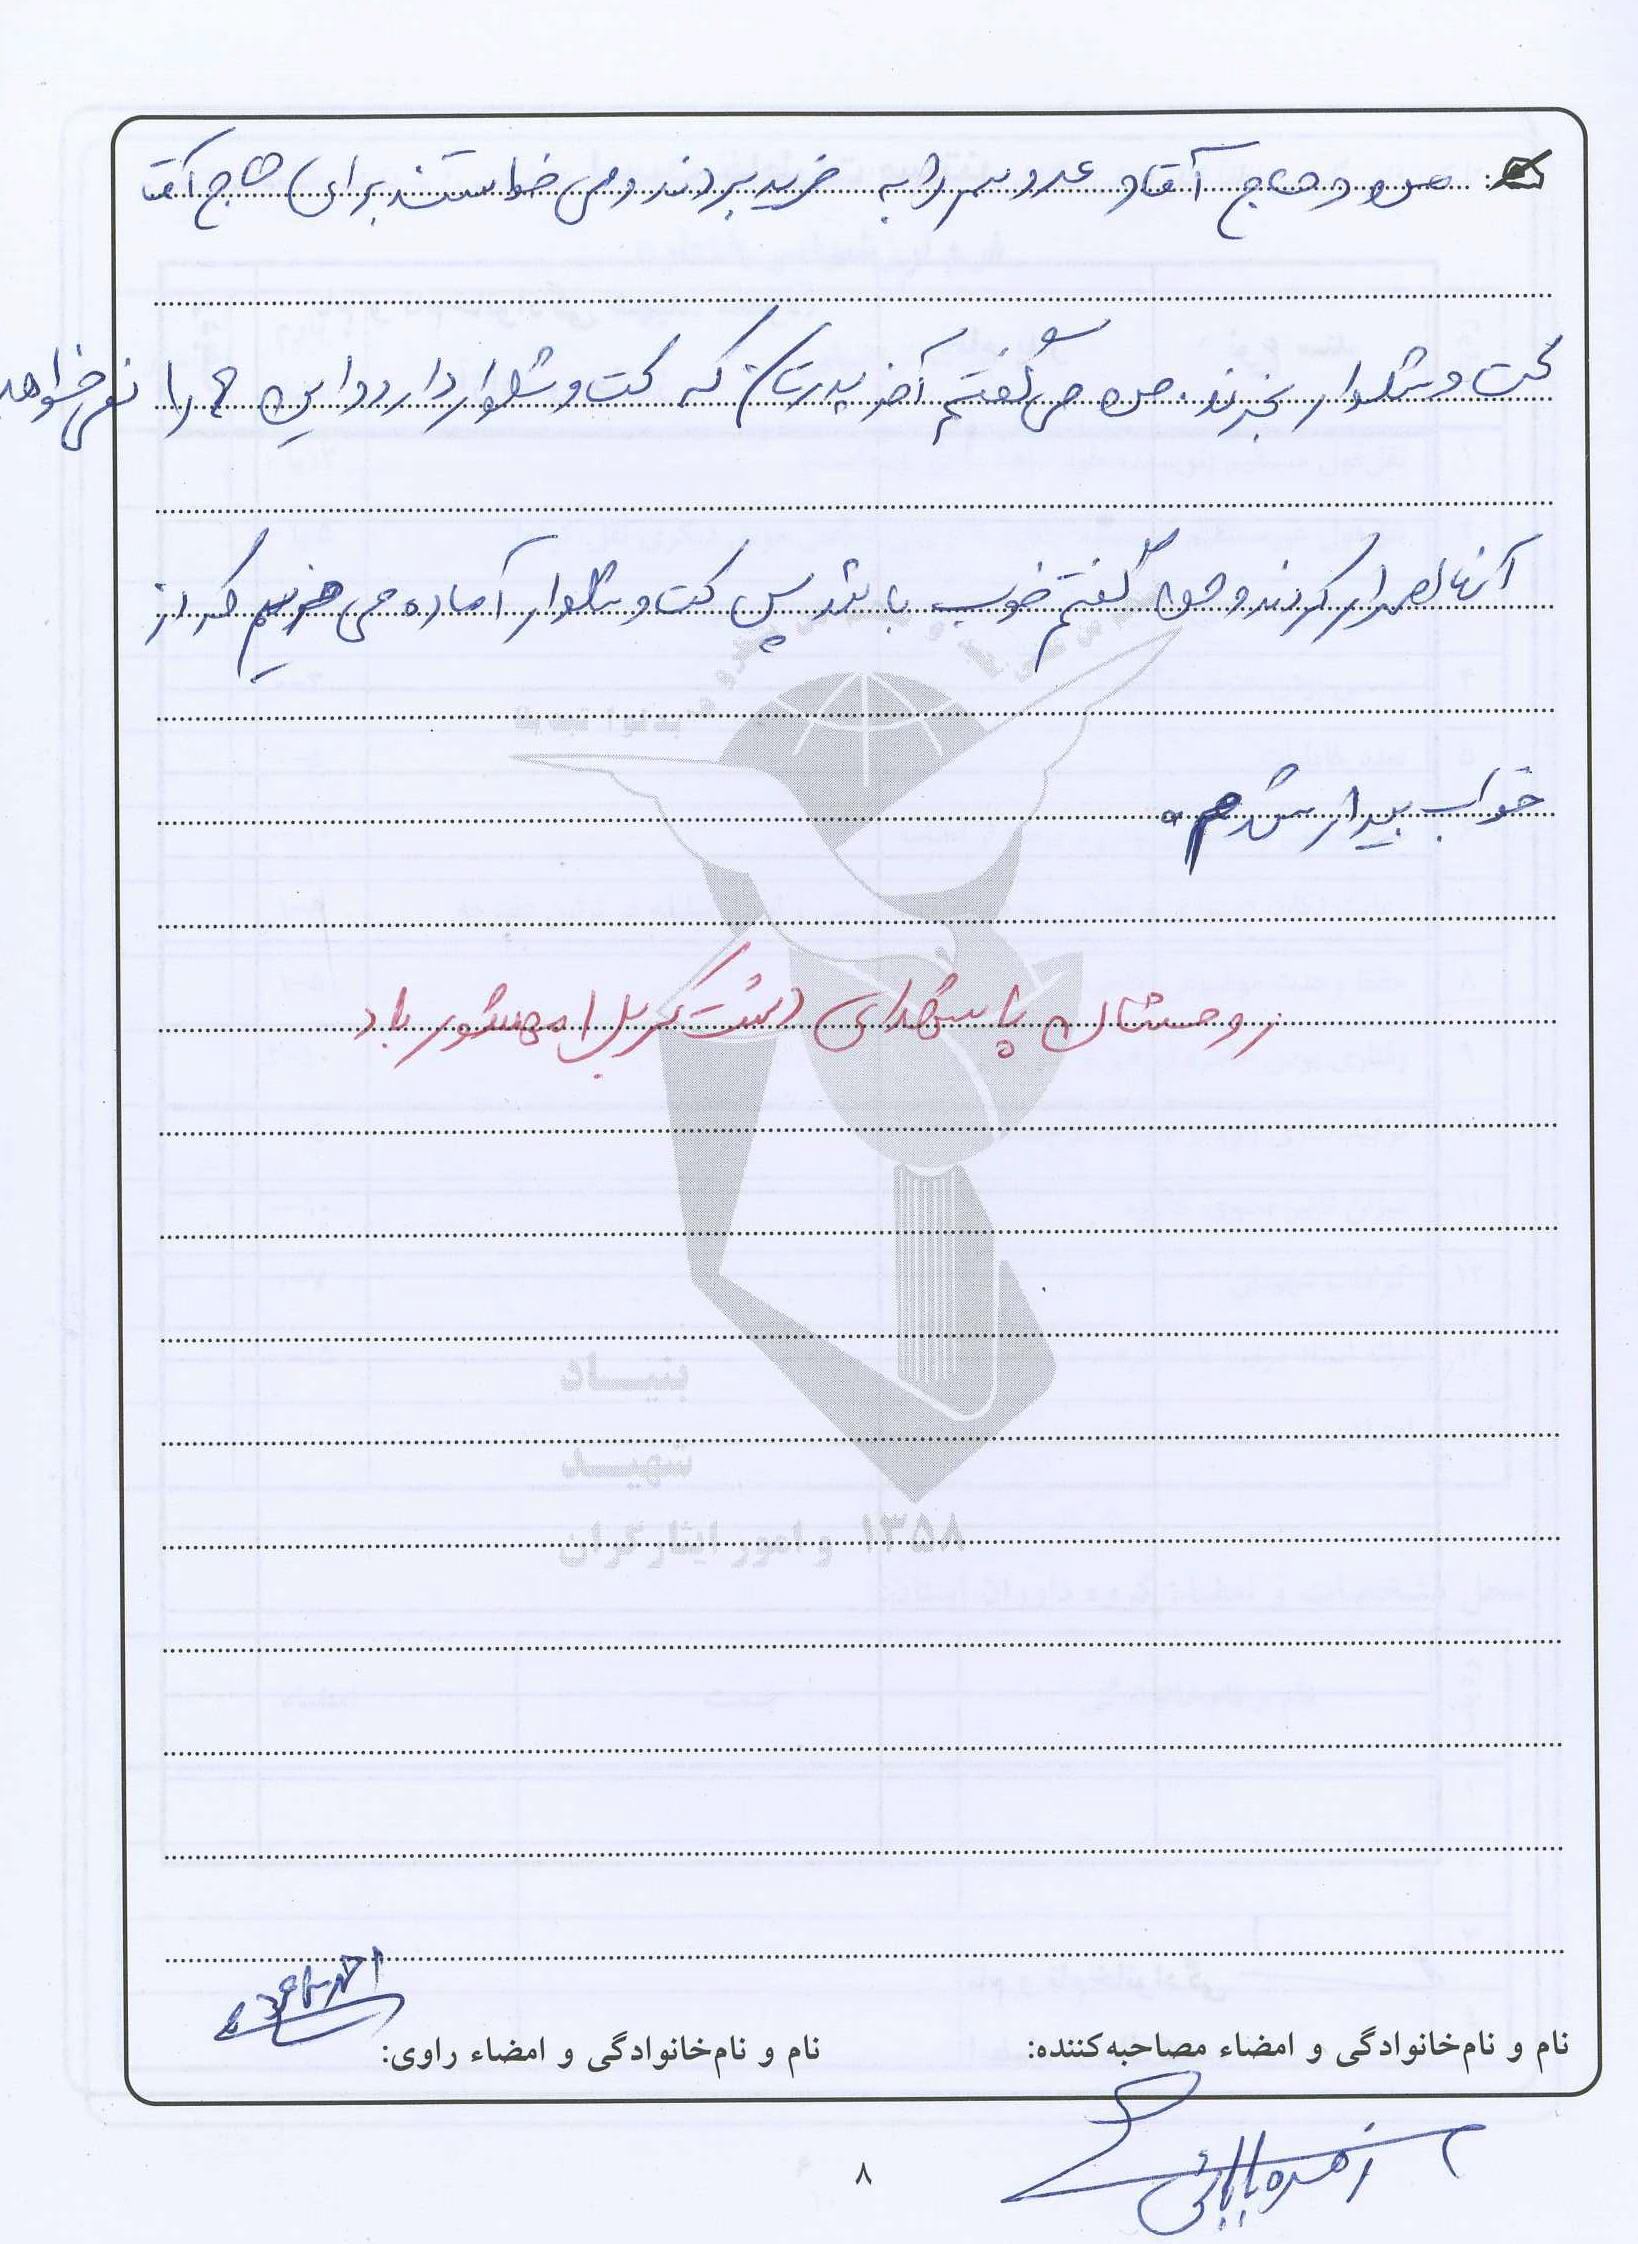 من و حاج آقا و عروسم را به خرید بردند و می خواستند برای حاج آقا
کت و شلوار بخرند. من می گفتم آخر پدرتان که کت و شلوار دارد و این ها را نمی خواهد
آنها اصرار کردند و من گفتم خوب باشد پس کت و شلوار آماده می خریم که از
خواب بیدار شدم.
روحشان با شهدای دشت کربلا محشور باد
بنیاد
شهید
و امور ایثارگران ۱۳۵۸
نام و نام‌خانوادگی و امضاء مصاحبه‌کننده:
نام و نام‌خانوادگی و امضاء راوی:
زهره بابائی
۸